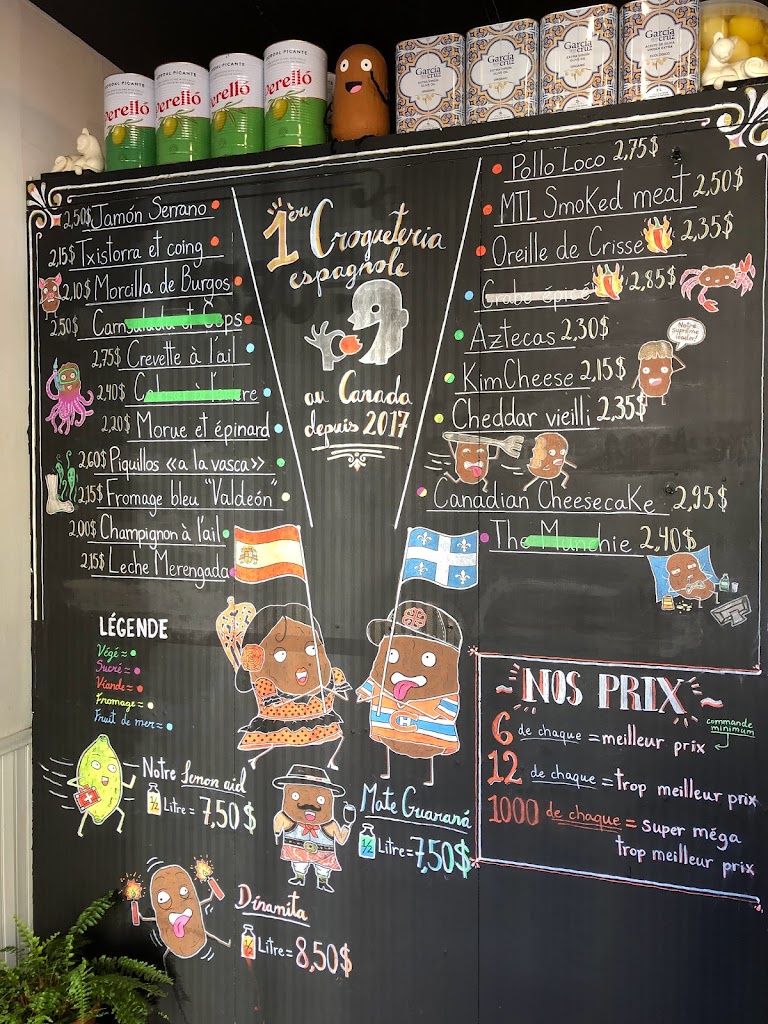 GORDAL PICANTE
Perelló
GORDAL PICANTE
Perelló
Perelló
GORDAL PICANTE
Perelló
García
de la
cruz
García
de la
cruz
García
de la
cruz
García
de la
cruz
2,50$ Jamón Serrano
2,15$ Txistorra et coing
2,10$ Morcilla de Burgos
2,50$
2,75$ Crevette à l'ail
2,40$
2,20$ Morue et épinard
2,60$ Piquillos «a la vasca»
2,15$ Fromage bleu "Valdeón"
2,00$ Champignon à l'ail
2,15$ Leche Merengada
1ère Croqueteria
espagnole
au Canada
depuis 2017
Pollo Loco 2,75$
MTL Smoked meat 2,50$
Oreille de Crisse 2,35$
Crabe épicé 2,85$
Aztecas 2,30$
KimCheese 2,15$
Notre
suprême
leader!
Cheddar vieilli 2,35$
Canadian Cheesecake 2,95$
The Munchie 2,40$
LÉGENDE
Végé =
Sucré =
Viande =
Fromage =
Fruit de mer =
Notre Lemon aid
1/2 Litre = 7,50$
Mate Guaraná
1/2 Litre = 7,50$
Dinamita
1/2 Litre = 8,50$
NOS PRIX
6 de chaque = meilleur prix
commande
minimum
12 de chaque = trop meilleur prix
1000 de chaque = super méga
trop meilleur prix